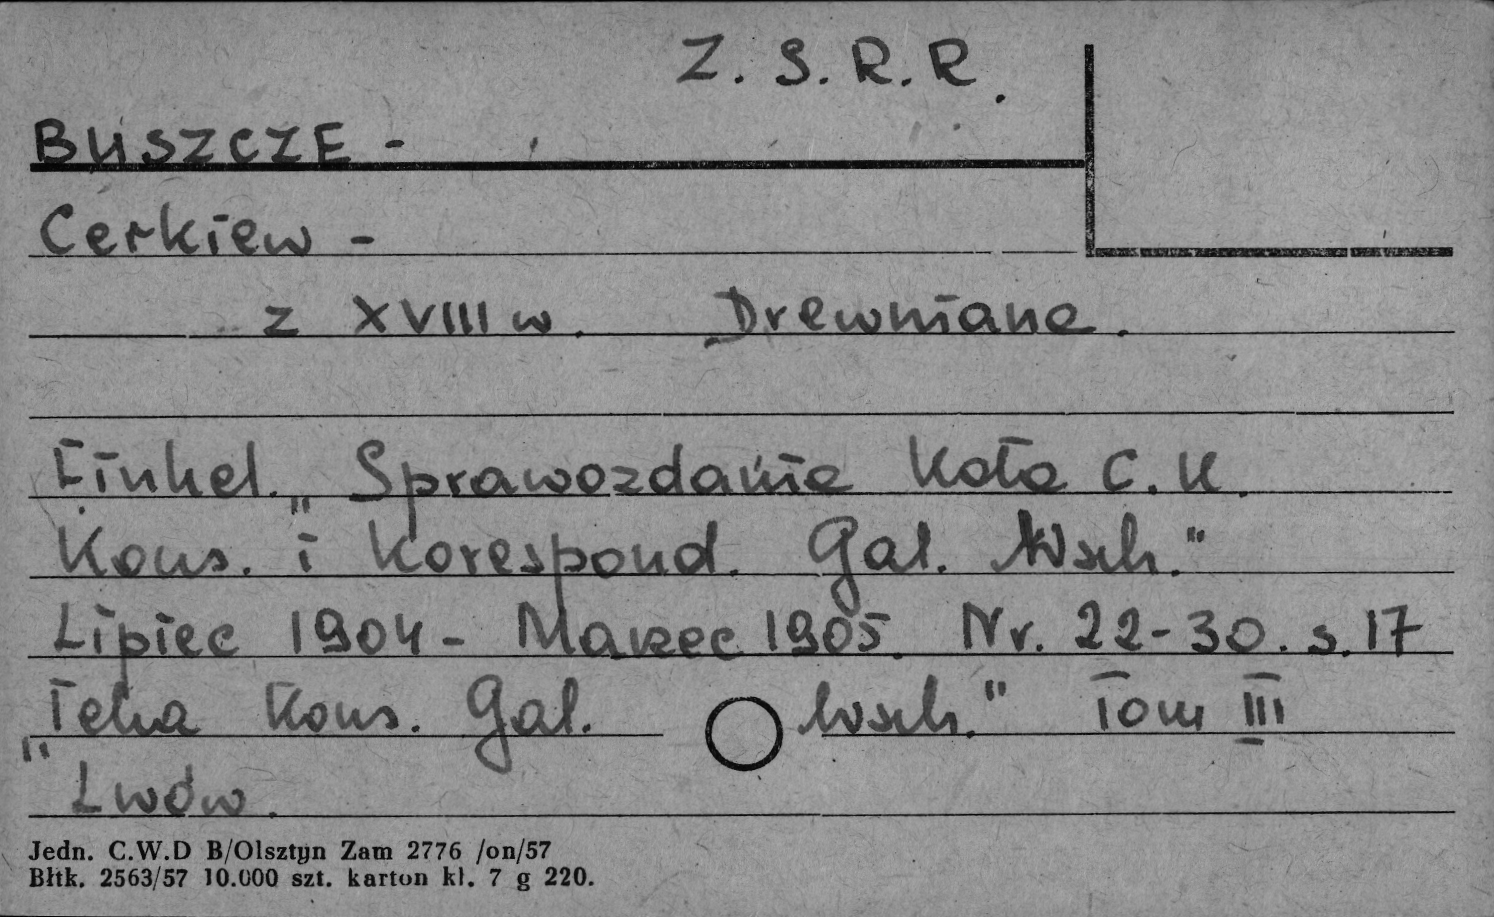 Z. S. R. R.
BUSZCZE -
Cerkiew -
z XVIII w. Drewniane.
Finkel. „Sprawozdanie Koła C. K.
Kons. i Korespond. Gal. Wsch."
Lipiec 1904 - Marzec 1905. Nr. 22-30. s. 17
„Teka Kons. Gal. Wsch." Tom III
Lwów.
Jedn. C.W.D B/Olsztyn Zam 2776 /on/57
Błtk. 2563/57 10.000 szt. karton kl. 7 g 220.